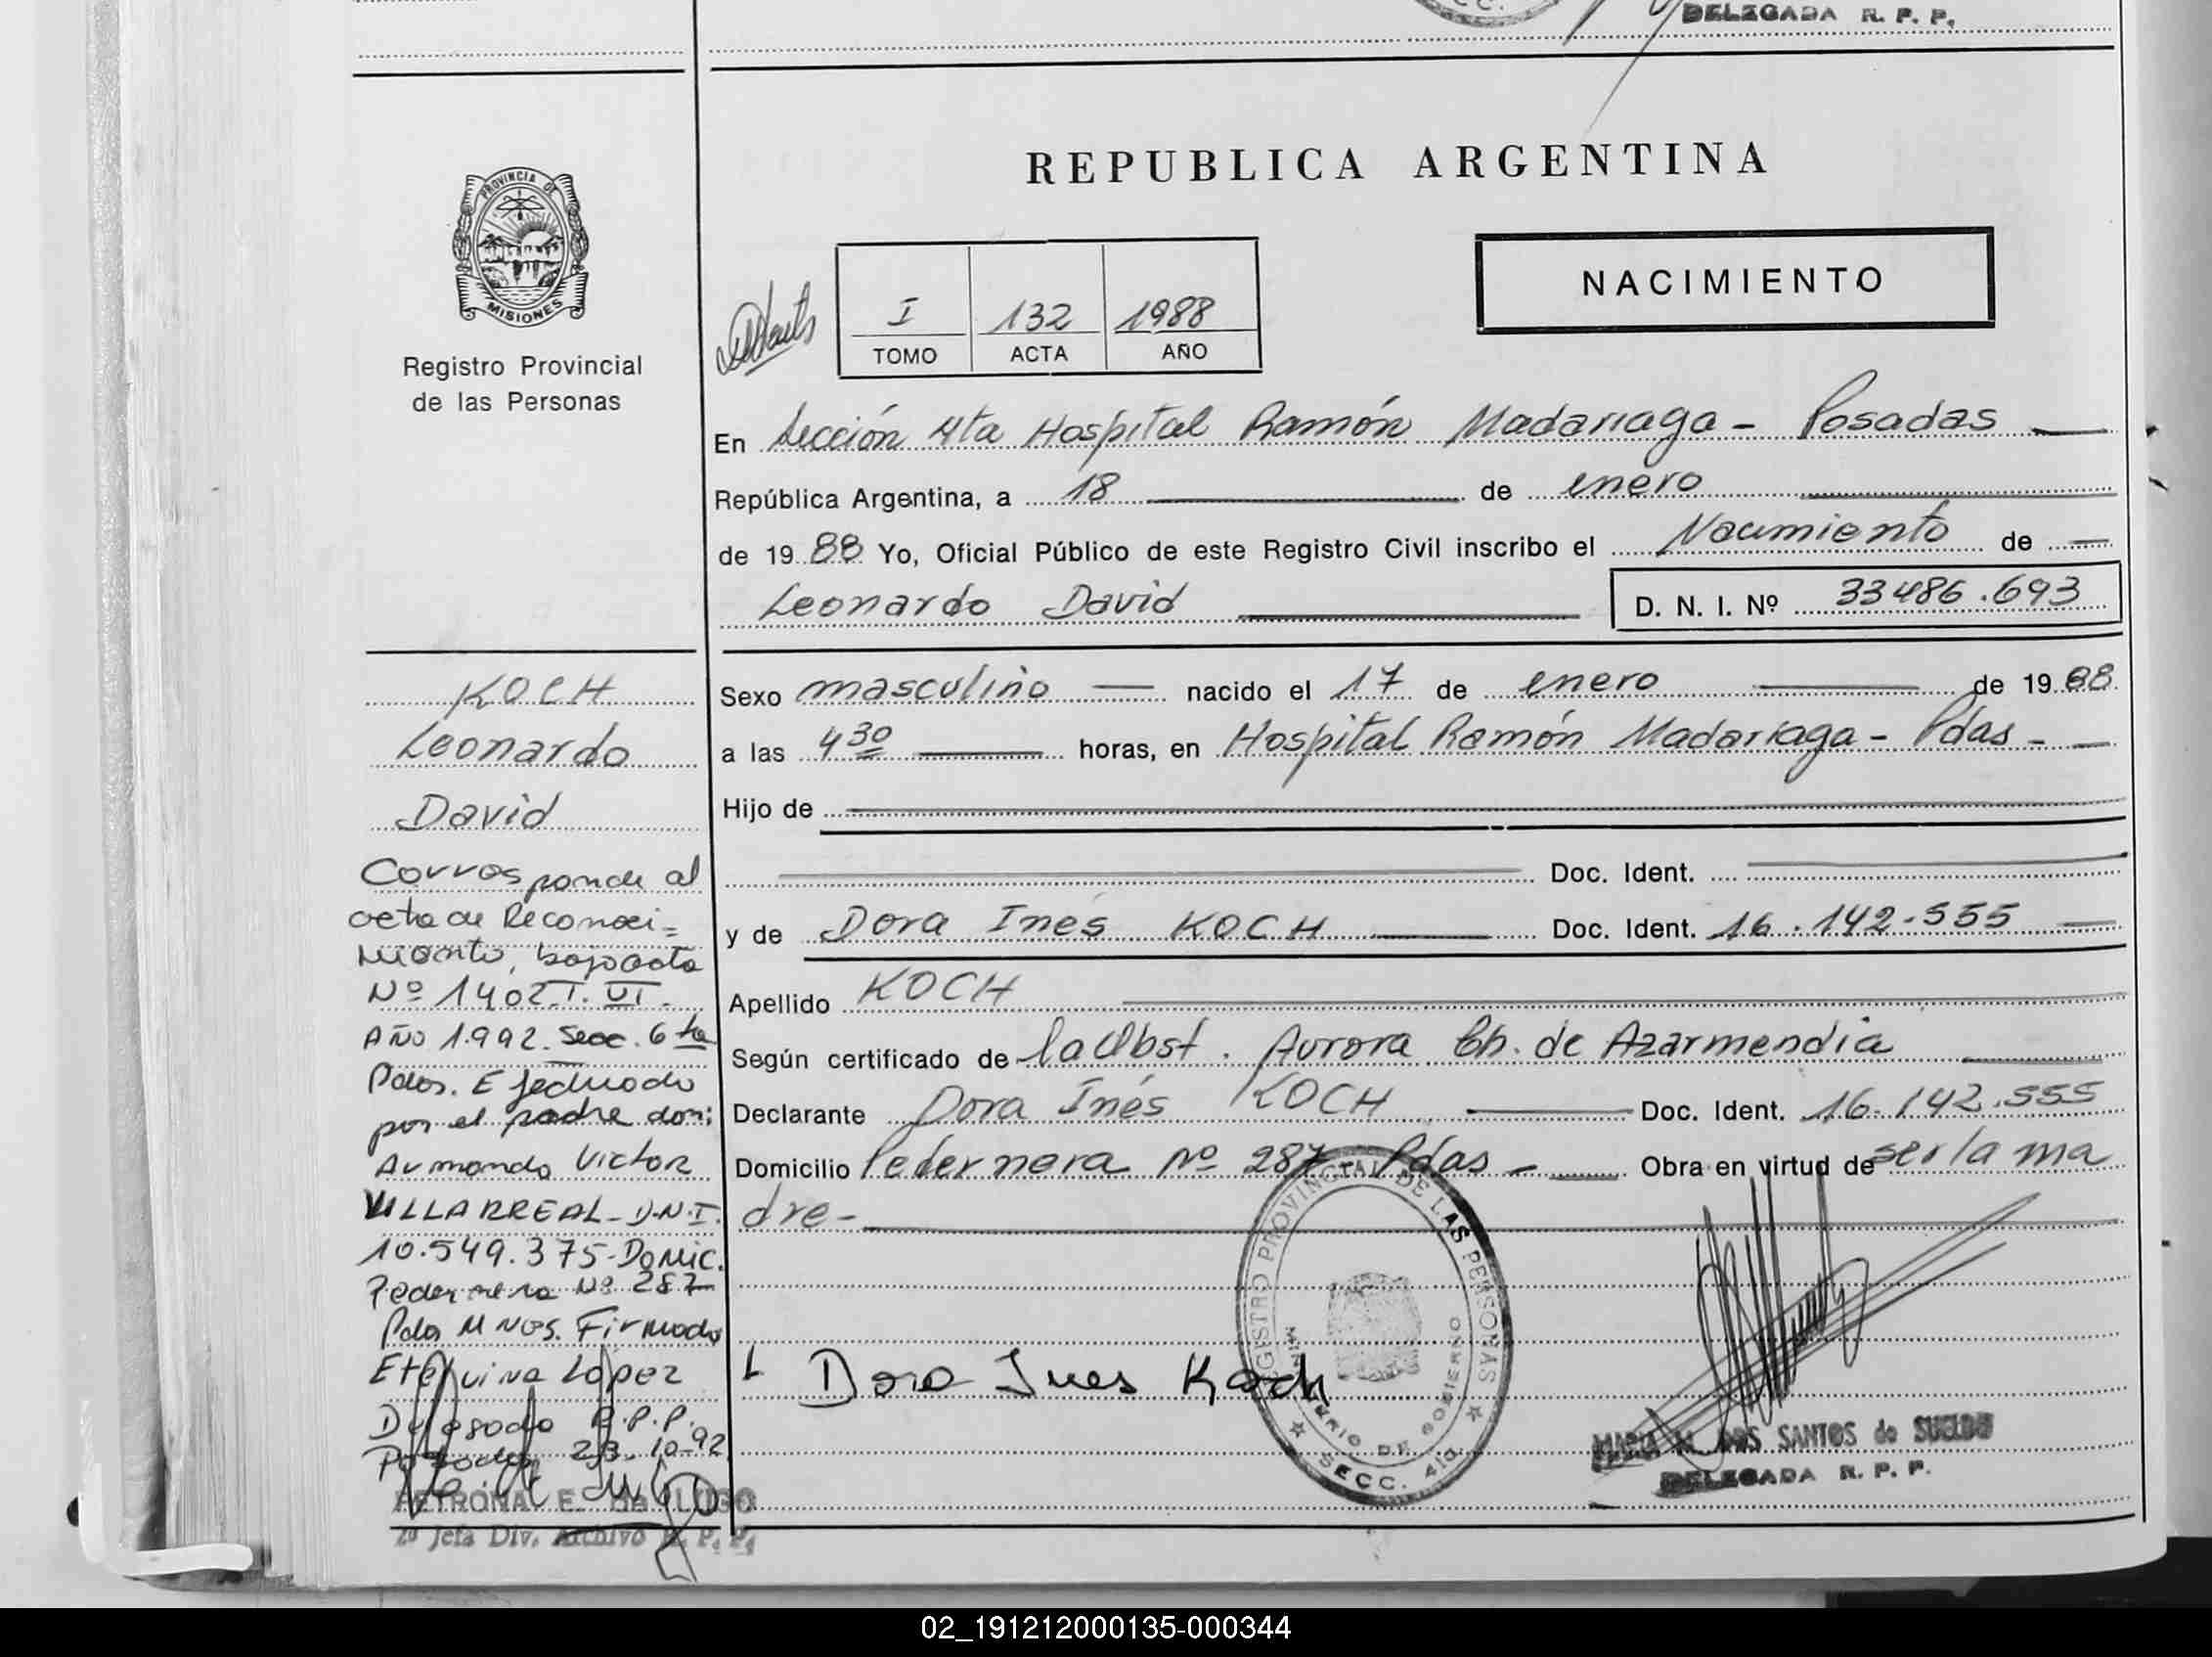 DELEGADA R. P. P.
PROVINCIA DE
MISIONES
Registro Provincial
de las Personas
REPUBLICA ARGENTINA
NACIMIENTO
I 132 1988
TOMO ACTA AÑO
En Sección 4ta Hospital Ramón Madariaga - Posadas
República Argentina, a 18 de enero
de 1988 Yo, Oficial Público de este Registro Civil inscribo el Nacimiento de
Leonardo David
D. N. I. Nº 33486.693
Sexo masculino nacido el 17 de enero de 1988
a las 4 30 horas, en Hospital Ramón Madariaga - Pdas -
Hijo de
Doc. Ident.
y de Dora Inés KOCH Doc. Ident. 16.142.555
Apellido KOCH
Según certificado de la Obst. Aurora Ch. de Azarmendia
Declarante Dora Inés KOCH Doc. Ident. 16.142.555
Domicilio Pedernera Nº 287 Pdas - Obra en virtud de ser la ma
dre-
Dora Ines Koch
REGISTRO PROVINCIAL DE LAS PERSONAS
MINISTERIO DE GOBIERNO
SECC. 4ta.
MARIA M. DOS SANTOS de SUELDO
DELEGADA R. P. P.
KOCH
Leonardo
David
Corresponde al
acta de Reconoci=
miento, bajo acta
Nº 1402 T. VI.
AÑO 1.992. Secc. 6ta
Pdas. Efectuado
por el padre don:
Armando Victor
VILLARREAL - D.N.I.
10.549.375 - Domic.
Pedernera Nº 287
Pdas Mnes. Firmado
Etelvina López
Delegada R.P.P.
Posadas, 23-10-92
PETRONA E. de LUGO
2º Jefa Div. Archivo R. P. P.
02_191212000135-000344